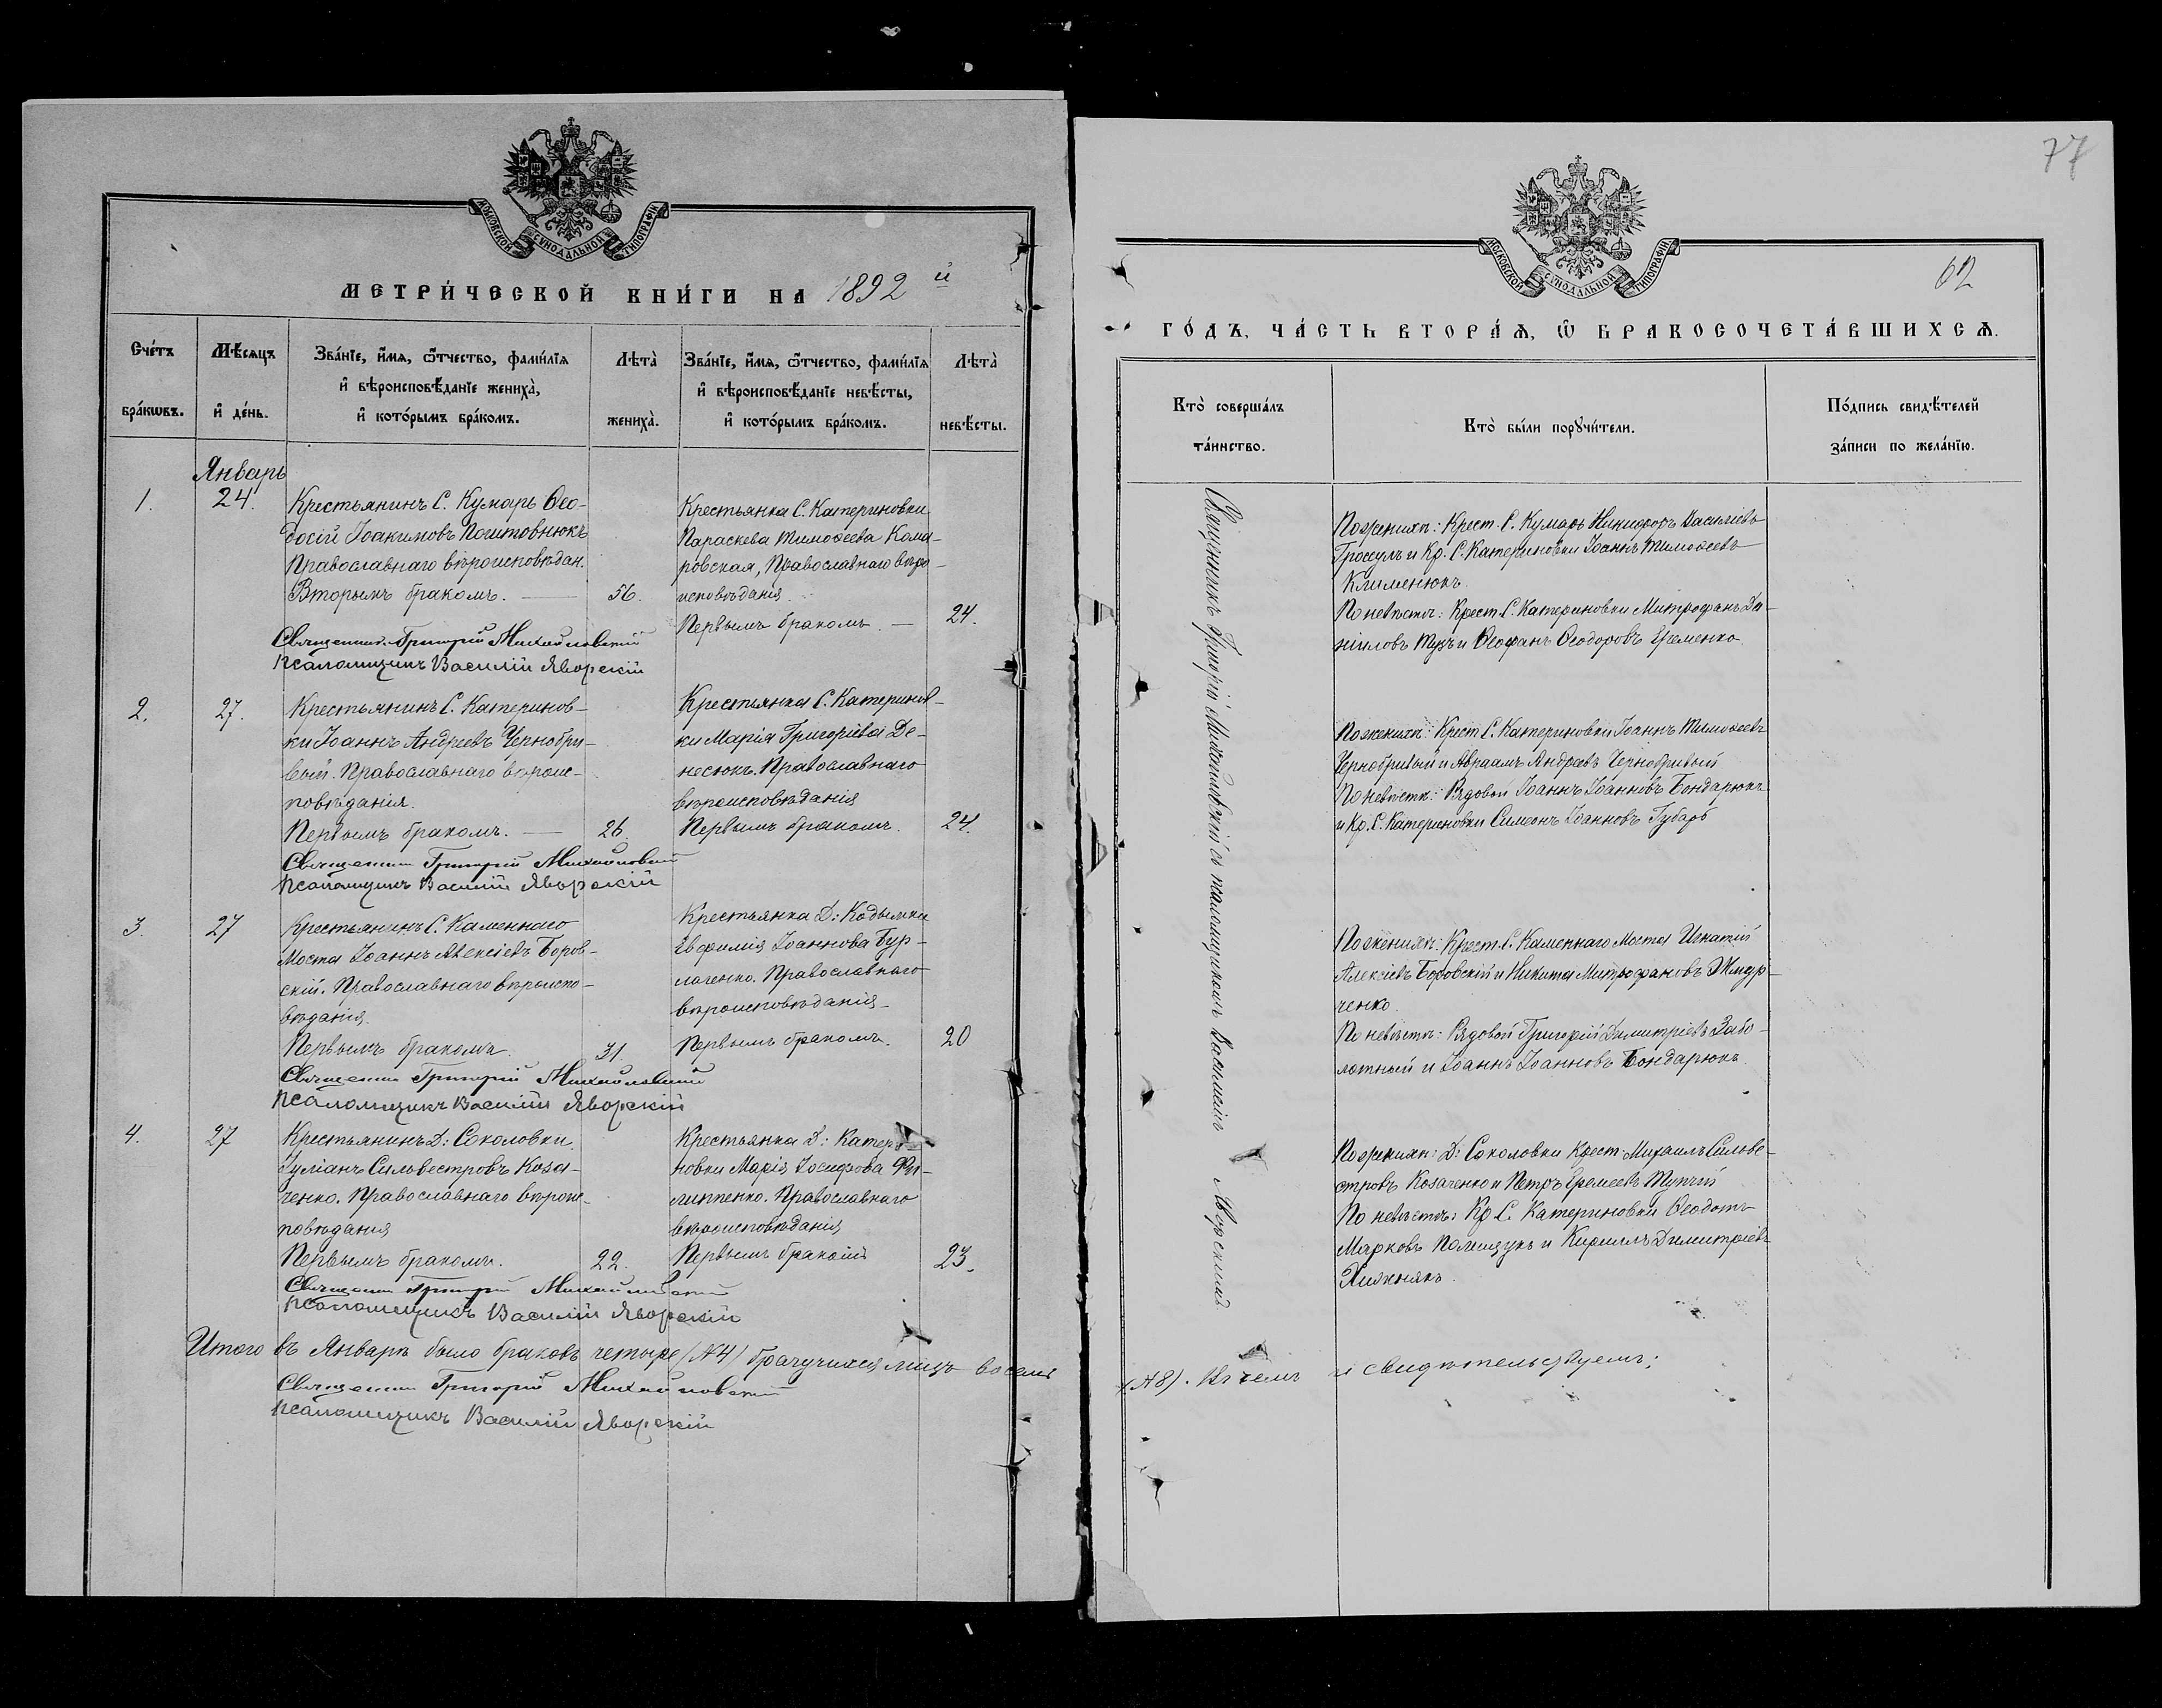 МОСКОВСКОЙ СѴНОДАЛЬНОЙ ТИПОГРАФІИ
МЕТРИ́ЧЕСКОЙ КНИ́ГИ НА 1892 й
Сче́тъ бра́кѡвъ.
Мѣ́сяцъ и҆ де́нь.
Зва́нїе, и҆́мѧ, ѿтчество, фами́лїѧ
и҆ вѣроисповѣ́данїе жениха̀,
и҆ кото́рымъ бра́комъ.
Лѣта̀ жениха̀.
Зва́нїе, и҆́мѧ, ѿтчество, фами́лїѧ
и҆ вѣроисповѣ́данїе невѣ́сты,
и҆ кото́рымъ бра́комъ.
Лѣта̀ невѣ́сты.
Январь
1.
24.
Крестьянинъ С. Кумаръ Ѳео-
досій Іоакимовъ Поштовнюкъ
Православнаго вѣроисповѣдан.
Вторымъ бракомъ. —
56.
Крестьянка С. Катериновки
Параскева Тимоѳеева Кома-
ровская, Православнаго вѣро-
исповѣданія
Первымъ бракомъ. —
24.
Священник Григорій Михайловскій
Псаломщикъ Василій Яворскій
2.
27.
Крестьянинъ С. Катеринов-
ки Іоаннъ Андреевъ Чернобри-
вый. Православнаго вѣроис-
повѣданія.
Первымъ бракомъ. —
26.
Крестьянка С. Катеринов-
ки Марія Григоріева Де-
несюкъ. Православнаго
вѣроисповѣданія
Первымъ бракомъ.
24.
Священник Григорій Михайловскій
Псаломщикъ Василій Яворскій
3.
27
Крестьянинъ С. Каменнаго
Моста Іоаннъ Алексіевъ Боров-
скій. Православнаго вѣроиспо-
вѣданія.
Первымъ бракомъ.
31.
Крестьянка Д: Кодымки
Евфимія Іоаннова Бур-
лаченко. Православнаго
вѣроисповѣданія
Первымъ бракомъ.
20
Священник Григорій Михайловскій
Псаломщикъ Василій Яворскій
4.
27
Крестьянинъ Д: Соколовки
Іуліанъ Сильвестровъ Коза-
ченко. Православнаго вѣроис-
повѣданія
Первымъ бракомъ.
22.
Крестьянка Д: Катери-
новки Марія Іосифова Фи-
липпенко. Православнаго
вѣроисповѣданія
Первымъ бракомъ
23.
Священник Григорій Михайловскій
Псаломщикъ Василій Яворскій
Итого въ Январѣ было браковъ четыре (№4) брачущихся лицъ восемь
Священник Григорій Михайловскій
Псаломщикъ Василій Яворскій
77
МОСКОВСКОЙ СѴНОДАЛЬНОЙ ТИПОГРАФІИ
62
ГО́ДЪ, ЧА́СТЬ ВТОРА́Ѧ, Ѽ БРАКОСОЧЕТА́ВШИХСѦ.
Кто̀ соверша́лъ
та́инство.
Кто̀ бы́ли порꙋчи́тели.
По́дпись свидѣ́телей
за́писи по жела́нїю.
Священникъ Григорій Михайловскій съ псаломщикомъ Василіемъ Яворскимъ
По женихѣ: Крест. С. Кумаръ Никифоръ Василіевъ
Гроссулъ и Кр. С. Катериновки Іоаннъ Тимоѳеевъ
Клименюкъ
По невѣстѣ: Крест. С. Катериновки Митрофанъ Да-
ніиловъ Тузъ и Ѳеофанъ Ѳеодоровъ Еременко
По женихѣ: Крест С. Катериновки Іоаннъ Тимоѳеевъ
Чернобривый и Авраамъ Андреевъ Чернобривый
По невѣстѣ: Рядовой Іоаннъ Іоанновъ Бондарюкъ
и Кр. С. Катериновки Симеонъ Іоанновъ Губарь
По женихѣ: Крест. С. Каменнаго Моста Игнатій
Алексіевъ Боровскій и Никита Митрофановъ
ченко.
По невѣстѣ: Рядовой Григорій Димитріевъ Забо-
лотный и Іоаннъ Іоанновъ Бондарюкъ.
По женихѣ: Д: Соколовки Крест. Михаилъ Сильве-
стровъ Козаченко и Петръ Еремеевъ Тупчій
По невѣстѣ: Кр С. Катериновки Ѳеодотъ
Марковъ Полищукъ и Кириллъ Димитріевъ
Хижнякъ.
(№8). Въ чемъ и свидѣтельствуемъ: